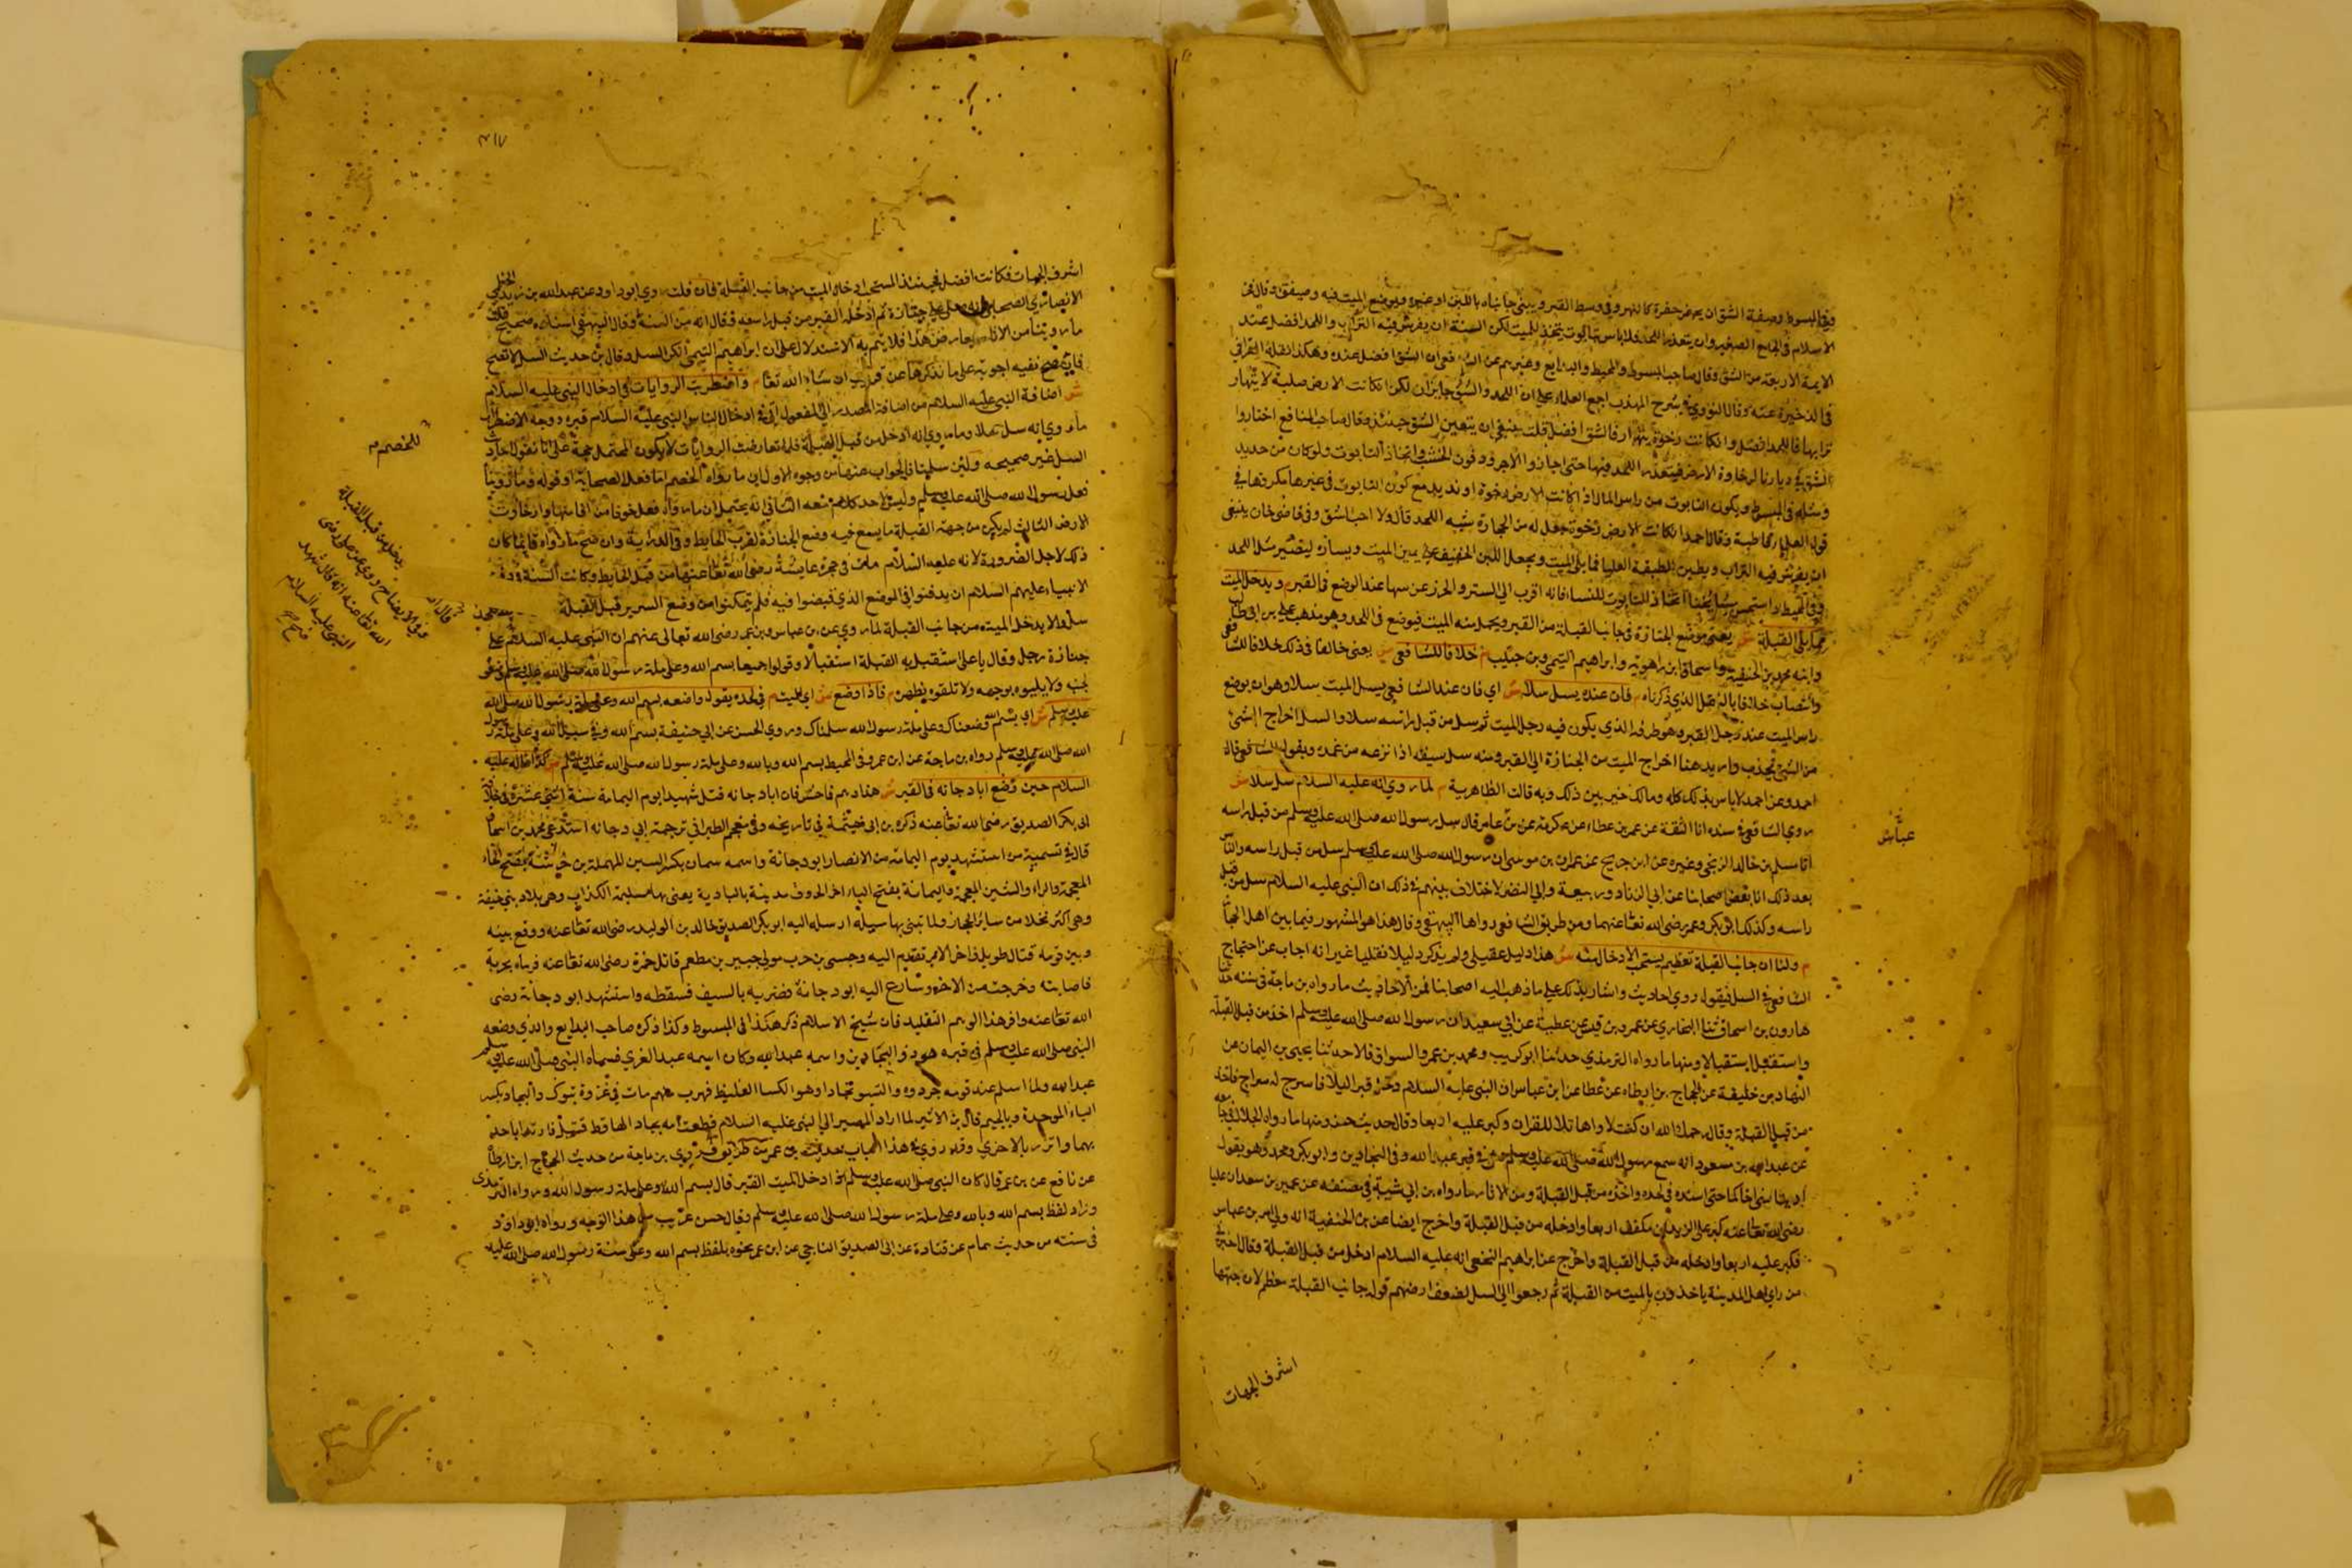 وفي المبسوط وصفة الشق ان يحفر حفرة كالنهر في وسط القبر ويبنى جانباه باللبن او غيره ويوضع الميت فيه ويسقف وقال فخر
الاسلام في الجامع الصغير وان تعذر اللحد فلا باس بتابوت يتخذ للميت لكن السنة ان يفرش فيه التراب واللحد افضل عند
الايمة الاربعة من الشق وقال صاحب المبسوط والمحيط والبدايع وغيرهم عن الشافعي ان الشق افضل عنده وهكذا نقله القرافي
في الذخيرة عنه وقال النووي في شرح المهذب اجمع العلماء على ان اللحد والشق جايزان لكن ان كانت الارض صلبة لا ينهار
ترابها فاللحد افضل وان كانت رخوة ينهار فالشق افضل قلت ينبغي ان يتعين الشق حينئذ وقال صاحب المنافع اختاروا
الشق في ديارنا لرخاوة الارض فيتعذر اللحد فيها حتى اجازوا الاجر ودفوف الخشب واتخاذ التابوت ولو كان من حديد
ومثله في المبسوط ويكون التابوت من راس المال اذا كانت الارض رخوة او ندية مع كون التابوت في غيرها مكروها في
قول العلماء قاطبة وقال احمد ان كانت الارض رخوة جعل له من الحجارة شبه اللحد قال ولا احب الشق وفي قاضي خان ينبغي
ان يفرش فيه التراب ويطين الطبقة العليا مما يلي الميت ويجعل اللبن الخفيف على يمين الميت ويساره ليصير مثل اللحد
وفي المحيط واستحسن مشايخنا اتخاذ التابوت للنساء فانه اقرب الى الستر والحرز عن مسها عند الوضع في القبر م ويدخل الميت
مما يلي القبلة ش يعني موضع الجنازة في جانب القبلة من القبر ويحمل منه الميت فيوضع في اللحد وهو مذهب علي بن ابي طالب
وابنه محمد بن الحنفية واسحاق ابن راهويه وابراهيم التيمي وبن حبيب م خلافا للشافعي ش يعني خالفنا في ذلك خلافا للشافعي
وانتصاب خلافا بالفعل الذي ذكرناه م فان عنده يسل سلا ش اي فان عند الشافعي يسل الميت سلا وهو ان يوضع
راس الميت عند رجل القبر وهو طرفه الذي يكون فيه رجل الميت ثم يسل من قبل راسه سلا والسل اخراج الشئ
من الشئ بجذب واريد هنا اخراج الميت من الجنازة الى القبر ومنه سل سيفه اذا نزعه من غمده وبقول الشافعي قال
احمد وعن احمد لا باس بذلك كله ومالك خير بين ذلك وبه قالت الظاهرية م لما روي انه عليه السلام سل سلا ش
روي الشافعي في مسنده انا الثقة عن عمر بن عطاء عن عكرمة عن بن عامر قال سل رسول الله صلى الله عليه وسلم من قبل راسه
عباس
انا مسلم بن خالد الزنجي وغيره عن ابن جريج عن عمران بن موسى ان رسول الله صلى الله عليه وسلم سل من قبل راسه والناس
بعد ذلك انا بعض اصحابنا عن ابي الزناد وربيعة وابي النضر لا اختلاف بينهم في ذلك ان النبي عليه السلام سل من قبل
راسه وكذلك ابو بكر وعمر رضي الله تعا عنهما ومن طريق الشافعي رواها البيهقي وقال هذا هو المشهور فيما بين اهل الحجاز
م ولنا ان جانب القبلة تعظيم يستحب الادخال منه ش هذا دليل عقيلي ولم يذكر دليلا نقليا غير انه اجاب عن احتجاج
الشافعي في السل فيقول روي احاديث واشار بذلك على ما ذهب اليه اصحابنا فمن الاحاديث ما رواه بن ماجة في سننه حدثنا
هارون بن اسحاق ثنا البخاري عن عمرو بن قيس عن عطية عن ابي سعيد ان رسول الله صلى الله عليه وسلم اخذ من قبل القبلة
واستقبل استقبالا ومنها ما رواه الترمذي حدثنا ابو كريب ومحمد بن عمرو السواق قالا حدثنا يحيى بن اليمان عن
النهال بن خليفة عن الحجاج بن ارطاه عن عطا عن ابن عباس ان النبي عليه السلام دخل قبرا ليلا فاسرج له سراج فاخذه
من قبل القبلة وقال رحمك الله ان كنت لاواها تلا للقران وكبر عليه اربعا وقال حديث حسن ومنها ما رواه الخلال في جامعه
عن عبد الله بن مسعود انه سمع رسول الله صلى الله عليه وسلم في قبر عبد الله ذي البجادين وابو بكر وعمر وهو يقول
ادنيا مني اخاكما حتى اسنده في لحده واخذه من قبل القبلة ومن الاثار ما رواه بن ابي شيبة في مصنفه عن عمير بن سعد ان عليا
رضي الله تعا عنه كبر على يزيد بن مكفف اربعا وادخله من قبل القبلة واخرج ايضا عن بن الحنفية انه ولي امر بن عباس
فكبر عليه اربعا وادخله من قبل القبلة واخرج عن ابراهيم النخعي انه عليه السلام ادخل من قبل القبلة وقال اخبرني
من راى اهل المدينة ياخذون بالميت من القبلة ثم رجعوا الى السل لضعف ارضهم قوله جانب القبلة معظم لان جهتها
اشرف الجهات
٣١٧
اشرف الجهات فكانت افضل فحينئذ المستحب ادخال الميت من جانب القبلة فان قلت روي ابو داود عن عبد الله بن يزيد الخطمي
الانصاري الصحابي انه صلى على جنازة ثم ادخله القبر من قبل راسه وقال انه من السنة وقال البيهقي اسناده صحيح قلت
ما روينا من الاثار يعارض هذا فلا يتم به الاستدلال على ان ابراهيم التيمي انكر السل وقال بن حديث السل لا تصح
فان صح ففيه اجوبة على ما نذكرها عن قريب ان شاء الله تعا م واضطربت الروايات في ادخال النبي عليه السلام
ش اضافة النبي عليه السلام من اضافة المصدر الى المفعول اي في ادخال الناس النبي عليه السلام قبره ووجه الاضطراب
ما روي انه سل سلا وما روي انه ادخل من قبل القبلة فلما تعارضت الروايات لا يكون المحتمل حجة على انا نقول احاديث
للخصم
السل غير صحيحه ولئن سلمنا فالجواب عنها من وجوه الاول ان ما رواه الخصم اما فعل الصحابة او قوله وما روينا
فعل رسول الله صلى الله عليه وسلم وليس لاحد كلام معه الثاني انه يحتمل ان ما رواه فعل خوفا من انهيامها وارخاوت
الارض الثالث لم يكن من جهة القبلة ما يسع فيه وضع الجنازة لقرب الحايط وفي الدراية وان صح ما رواه فانما كان
ذلك لاجل الضرورة لانه عليه السلام مات في حجرة عايشة رضي الله تعا عنها من قبل الحايط وكانت السنة في دفن
الانبياء عليهم السلام ان يدفنوا في الموضع الذي قبضوا فيه فلم يتمكنوا من وضع السرير قبل القبلة
سل ولا يدخل الميت من جانب القبلة لما روي عن بن عباس وبن عمر رضي الله تعالى عنهم ان النبي عليه السلام صلى على
يدخل من قبل القبلة
وفي الايضاح روي عن علي رضي
الله تعا عنه انه قال شهد
النبي عليه السلام
جنازة رجل وقال يا علي استقبل به القبلة استقبالا وقولوا جميعا بسم الله وعلى ملة رسول الله صلى الله عليه وسلم وضعوه
لجنبه ولا يكبوه لوجهه ولا تلقوه لظهره م فاذا وضع ش اي الميت م في لحده يقول واضعه بسم الله وعلى ملة رسول الله صلى الله
عليه وسلم ش اي بسم الله وضعناك وعلى ملة رسول الله سلمناك وروي الحسن عن ابي حنيفة بسم الله وفي سبيل الله وعلى ملة رسول
الله صلى الله عليه وسلم رواه بن ماجة عن ابن عمر وفي المحيط بسم الله وبالله وعلى ملة رسول الله صلى الله عليه وسلم م كذا قاله عليه
السلام حين وضع ابا دجانه في القبر ش هذا وهم فاحش فان ابا دجانه قتل شهيدا يوم اليمامة سنة اثنتي عشرة في خلافة
ابي بكر الصديق رضي الله تعا عنه ذكره بن ابي خيثمة في تاريخه وفي معجم الطبراني في ترجمة ابي دجانه اسند عن محمد بن اسحاق
قال في تسمية من استشهد يوم اليمامة من الانصار ابو دجانة واسمه سماك بكسر السين المهملة بن خرشنة بفتح الخاء
المعجمة والراء والشين المعجمة واليمامة بفتح الياء اخر الحروف مدينة بالبادية يعني بها مسيلمة الكذاب وهي بلاد بني حنيفة
وهي اكثر نخلا من ساير الحجاز ولما تنبى بها مسيلمة ارسل اليه ابو بكر الصديق خالد بن الوليد رضي الله تعا عنه ووقع بينه
وبين قومه قتال طويل فاخر الامر تقدم اليه وحشي بن حرب مولى جبير بن مطعم قاتل حمزة رضي الله تعا عنه فرماه بحربة
فاصابته وخرجت من الاخر وسارع اليه ابو دجانة فضربه بالسيف فسقط واستشهد ابو دجانة رضي
الله تعا عنه وافر هذا الوهم التقليد فان شيخ الاسلام ذكر هكذا في المبسوط وكذا ذكره صاحب البدايع والذي وضعه
النبي صلى الله عليه وسلم في قبره هو ذو البجادين واسمه عبد الله وكان اسمه عبد العزي فسماه النبي صلى الله عليه وسلم
عبد الله ولما اسلم عند قومه جردوه والبسوه بجادا وهو الكسا الغليظ فهرب منهم مات في غزوة تبوك والبجاد بكسر
الباء الموحدة وبالجيم قال بن الاثير لما اراد المسير الى النبي عليه السلام قطعت امه بجادا لها قطعتين فارتدا باحد
بهما واتزر بالاخري وقد روي في هذا الباب حديث بن عمر من طريق فروي بن ماجة من حديث الحجاج ابن ارطاه
عن نافع عن بن عمر قال كان النبي صلى الله عليه وسلم اذا ادخل الميت القبر قال بسم الله وعلى ملة رسول الله ورواه الترمذي
وزاد لفظ بسم الله وبالله وعلى ملة رسول الله صلى الله عليه وسلم وقال حسن غريب من هذا الوجه ورواه ابو داود
في سننه من حديث همام عن قتادة عن ابي الصديق الناجي عن ابن عمر بنحوه بلفظ بسم الله وعلى سنة رسول الله صلى الله عليه